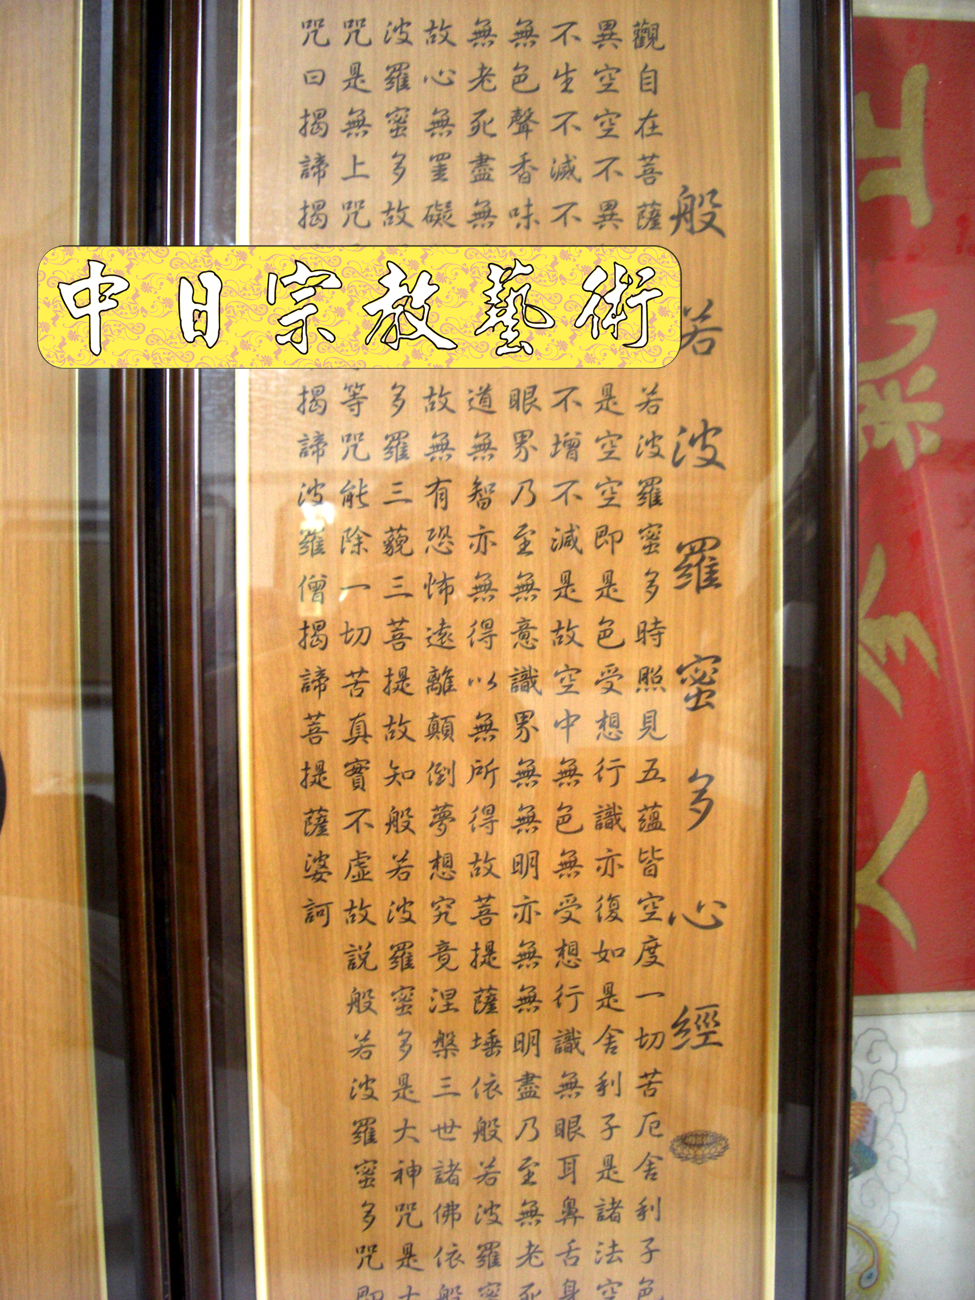 中日宗教藝術
般若波羅蜜多心經
觀自在菩薩 若波羅蜜多時照見五蘊皆空度一切苦厄舍利子色
異空空不異 是空空即是色受想行識亦復如是舍利子是諸法空
不生不滅不 不增不減是故空中無色無受想行識無眼耳鼻舌身
無色聲香味 眼界乃至無意識界無無明亦無無明盡乃至無老死
無老死盡無 道無智亦無得以無所得故菩提薩埵依般若波羅蜜
故心無罣礙 故無有恐怖遠離顛倒夢想究竟涅槃三世諸佛依般
波羅蜜多故 多羅三藐三菩提故知般若波羅蜜多是大神咒是大
咒是無上咒 等咒能除一切苦真實不虛故說般若波羅蜜多咒即
咒曰揭諦揭 揭諦波羅僧揭諦菩提薩婆訶